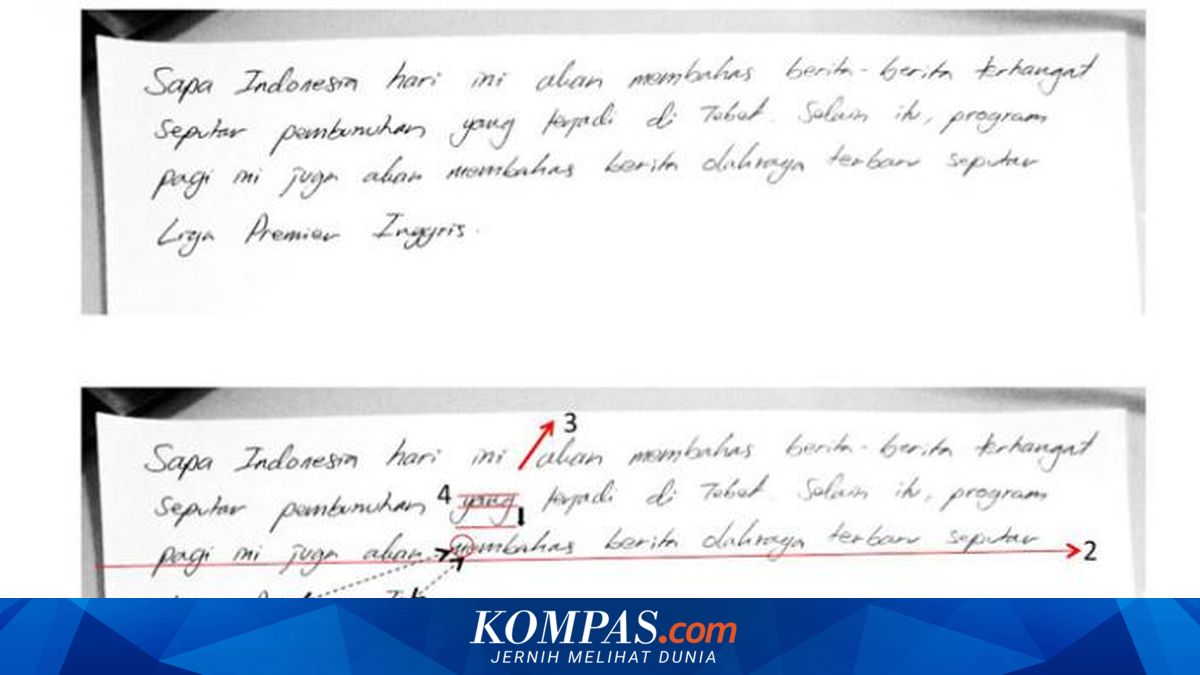 Sapa Indonesia hari ini akan membahas berita-berita terhangat
seputar pembunuhan yang terjadi di Tebet. Selain itu, program
pagi ini juga akan membahas berita olahraga terbaru seputar
Liga Premier Inggris.
3
Sapa Indonesia hari ini akan membahas berita-berita terhangat
4
seputar pembunuhan yang terjadi di Tebet. Selain itu, program
1
pagi ini juga akan membahas berita olahraga terbaru seputar
2
KOMPAS.com
JERNIH MELIHAT DUNIA